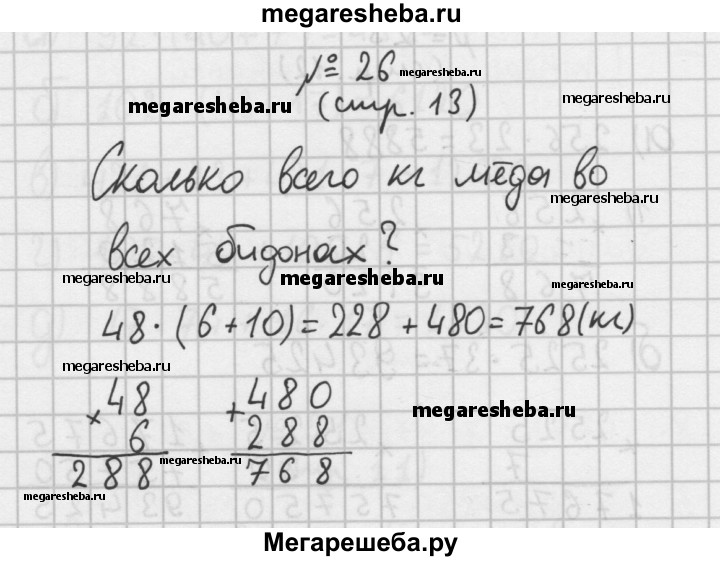 megaresheba.ru
№ 26
megaresheba.ru
megaresheba.ru
(стр. 13)
megaresheba.ru
Сколько всего кг мёда во
megaresheba.ru
всех бидонах?
megaresheba.ru
megaresheba.ru
megaresheba.ru
48·(6+10)=228+480=768(кг)
megaresheba.ru
×48
6
288
+480
288
768
megaresheba.ru
megaresheba.ru
megaresheba.ru
megaresheba.ru
Мегарешеба.ру